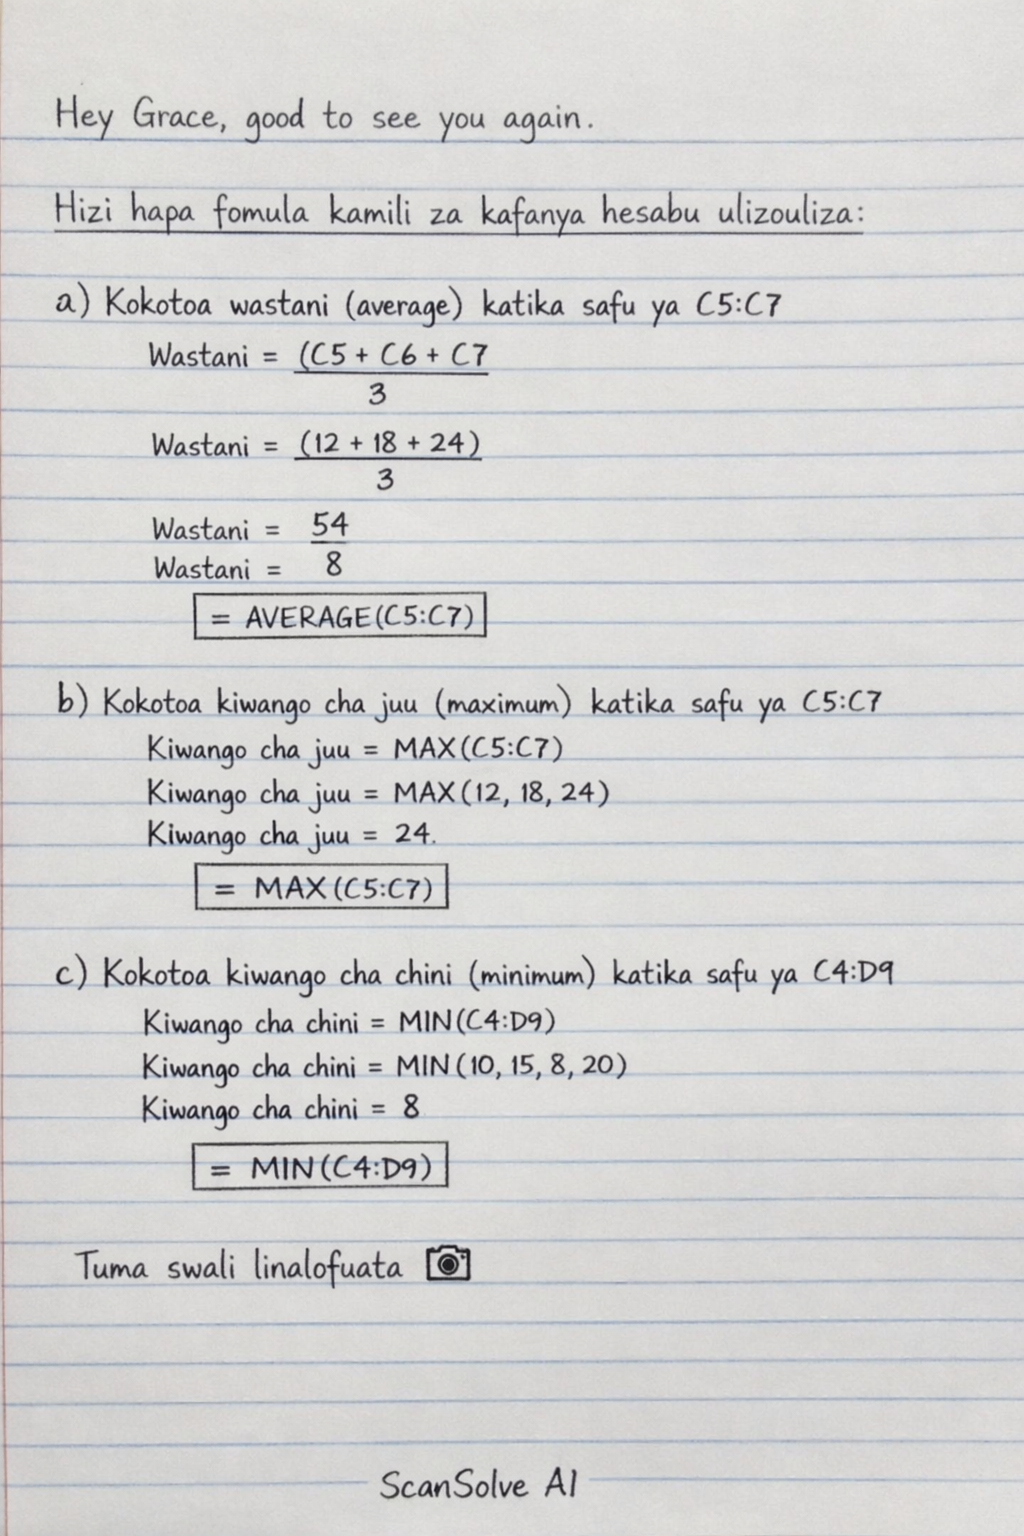 Hey Grace, good to see you again.
Hizi hapa fomula kamili za kafanya hesabu ulizouliza:
a) Kokotoa wastani (average) katika safu ya C5:C7
Wastani = (C5 + C6 + C7
3
Wastani = (12 + 18 + 24)
3
Wastani = 54
Wastani = 8
= AVERAGE(C5:C7)
b) Kokotoa kiwango cha juu (maximum) katika safu ya C5:C7
Kiwango cha juu = MAX(C5:C7)
Kiwango cha juu = MAX(12, 18, 24)
Kiwango cha juu = 24.
= MAX(C5:C7)
c) Kokotoa kiwango cha chini (minimum) katika safu ya C4:D9
Kiwango cha chini = MIN(C4:D9)
Kiwango cha chini = MIN(10, 15, 8, 20)
Kiwango cha chini = 8
= MIN(C4:D9)
Tuma swali linalofuata
ScanSolve AI